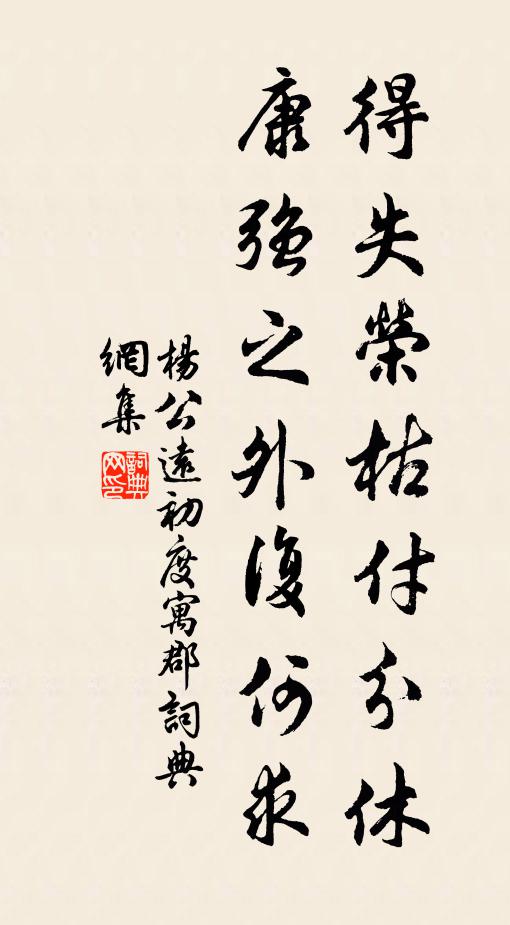 得失榮枯付分休
康強之外復何求
楊公遠初度寓郡詞典
網集
詞典网印